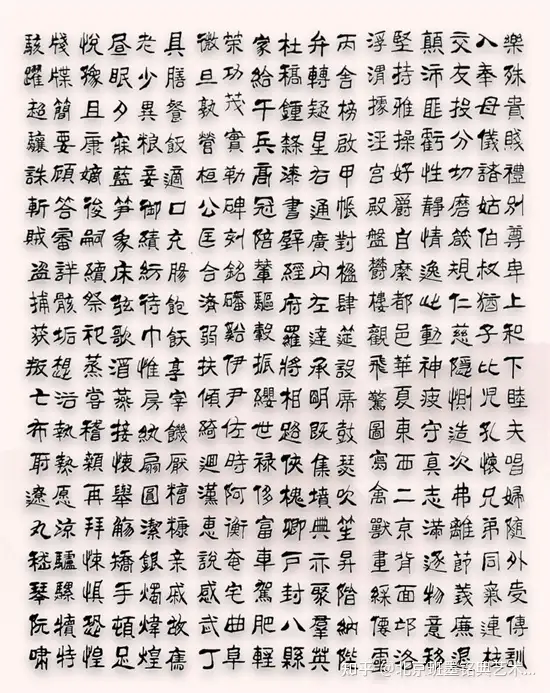 樂殊貴賤禮別尊卑上和下睦夫唱婦随外受傅訓
入奉母儀諸姑伯叔猶子比兒孔懷兄弟同氣連枝
交友投分切磨箴規仁慈隱惻造次弗離節義廉退
顛沛匪虧性靜情逸心動神疲守真志滿逐物意移
堅持雅操好爵自縻都邑華夏東西二京背面邙洛
浮渭據涇宮殿盤鬱樓觀飛驚圖寫禽獸畫綵僊靈
丙舍榜啟甲帳對楹肆筵設席鼓瑟吹笙昇階納陛
弁轉疑星右通廣內左達承明既集墳典亦聚羣英
杜稿鍾隸漆書壁經府羅將相路俠槐卿戶封八縣
家給千兵高冠陪輦驅轂振纓世祿侈富車駕肥輕
榮功茂實勒碑刻銘磻谿伊尹佐時阿衡奄宅曲阜
微旦孰營桓公匡合濟弱扶傾綺迴漢惠說感武丁
具膳餐飯適口充腸飽飫享宰饑厭糟糠親戚故舊
老少異粮妾御績紡侍巾帷房紈扇圓潔銀燭煒煌
晝眠夕寐藍笋象床弦歌酒燕接杯舉觴矯手頓足
悅豫且康嫡後嗣續祭祀蒸嘗稽顙再拜悚懼恐惶
牋牒簡要顧答審詳骸垢想浴執熱愿凉驢騾犢特
駭躍超驤誅斬賊盗捕獲叛亡布射遼丸嵇琴阮嘯
知乎 @北京班墨铭典艺术...